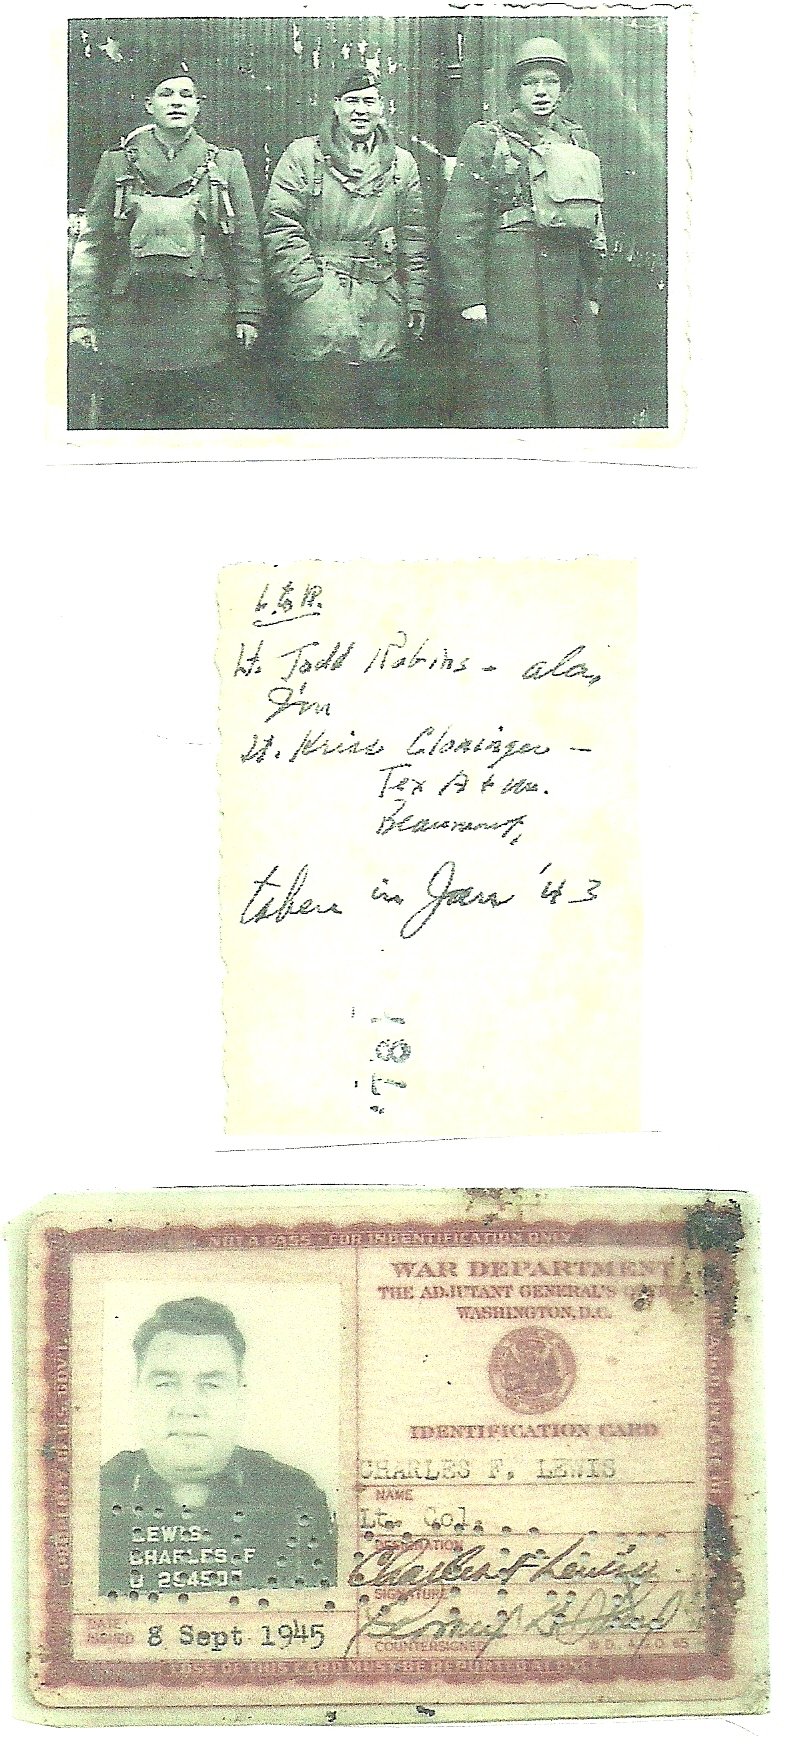 L to R.
Lt. Todd Robins - ala,
Jim
Lt. Kriss Cloninger -
Tex A + M.
Beaumont,
taken in Jan '43
NOT A PASS - FOR INDENTIFICATION ONLY
WAR DEPARTMENT
THE ADJUTANT GENERAL'S
WASHINGTON, D.C.
IDENTIFICATION CARD
CHARLES F. LEWIS
NAME
Lt. Col.
DESIGNATION
Charles F Lewis
SIGNATURE
COUNTERSIGNED
LEWIS
CHARLES F
DATE
ISSUED
8 Sept 1945
LOSS OF THIS CARD MUST BE REPORTED AT ONCE